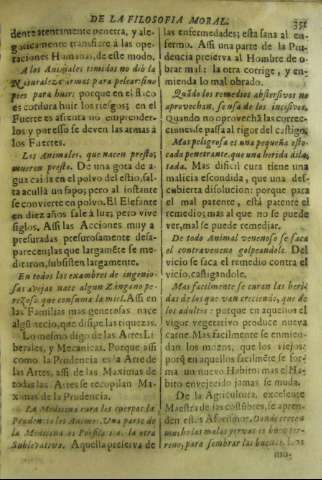 DE LA FILOSOFIA MORAL. 351
dente atentamente penetra, y ale-
goricamente transfiere à las ope-
raciones Humanas, de este modo.
A los Animales timidos no diò la
Naturaleza armas para pelear: sino
pies para huir; porque en el flaco
es cordura huir los riesgos; en el
Fuerte es afrenta no emprender-
los y por esso se deven las armas à
los Fuertes.
Los Animales, que nacen presto,
mueren presto. De una gota de a-
gua caida en el polvo de estio, sal-
ta acullà un sapo; pero al instante
se convierte en polvo. El Elefante
en diez años sale à luz; pero vive
siglos. Assi las Acciones muy a-
presuradas presurosamente desa-
parecen; las que largamẽte se me-
ditaron, subsisten largamente.
En todos los enxambres de ingenio-
sas Avejas nace algun Zangano pe-
rezoso, que consuma la miel. Assi en
las Familias mas generosas nace
algũ necio, que disipe las riquezas.
Lo mesmo digo de las Artes Li-
berales, y Mecanicas. Porque assi
como la Prudencia es la Arte de
las Artes, assi de las Maximas de
todas las Artes se recopilan Ma-
ximas de la Prudencia.
La Medicina cura los cuerpos: la
Prudencia los Animos. Una parte de
la Medicina es la otra
Aquella preserva de
las enfermedades; esta sana al en-
fermo. Assi una parte de la Pru-
dencia preserva al Hombre de o-
brar mal: la otra corrige, y en-
mienda lo mal obrado.
Quãdo los remedios abstersivos no
aprovechan, se usa de los incisivos.
Quando no aprovechã las correc-
ciones, se passa al rigor del castigo.
Mas peligrosa es una pequeña esto-
cada penetrante, que una herida dila-
tada. Mas dificil cura tiene una
malicia escondida, que una des-
cubierta disolucion: porque para
el mal patente, està patente el
remedio; mas al que no se puede
ver, mal se puede remediar.
De todo Animal venenoso se saca
el contraveneno golpeandole. Del
vicio se saca el remedio contra el
vicio, castigandole.
Mas facilmente se curan las heri-
das de los que van creciendo, que de
los adultos: porque en aquellos el
vigor vegetativo produce nueva
carne. Mas facilmente se enmien-
dan los mozos, que los viejos:
porq̃ en aquellos facilmẽte se for-
ma un nuevo Habito: mas el Ha-
bito envejecido jamas se muda.
De la Agricultura, excelente
Maestra de las costũbres, se apren-
den estos Aforismos. Donde crecen
muchas malas yervas es buen ter-
reno, para sembrar las buenas. Los